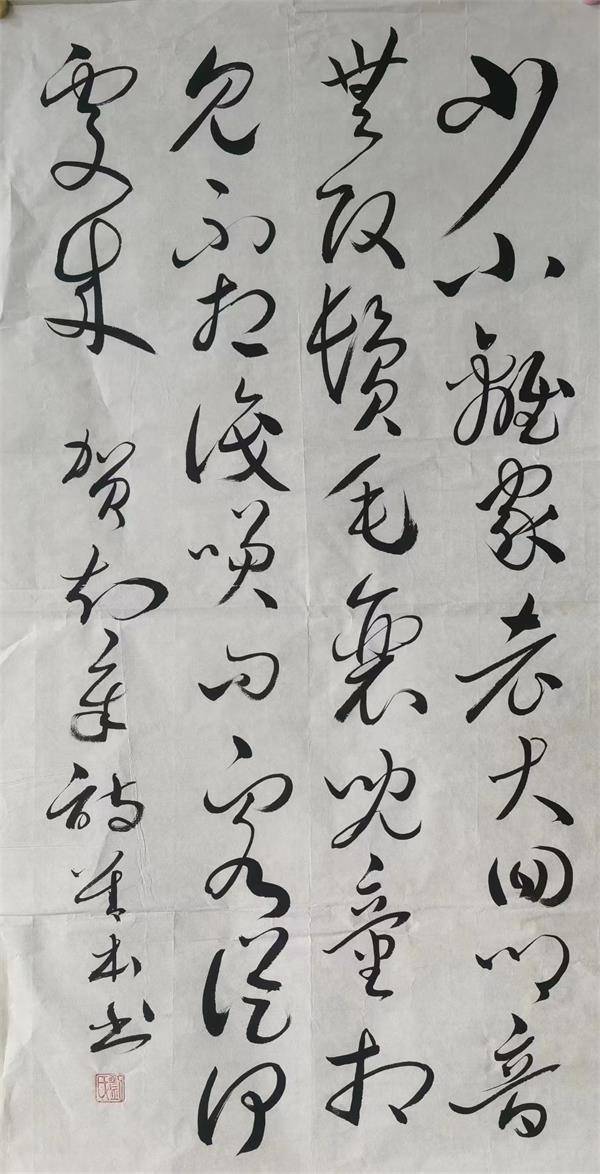 少小離家老大回鄉音
無改鬢毛衰兒童相
見不相識咲問客從何
處來 賀知章詩 本书